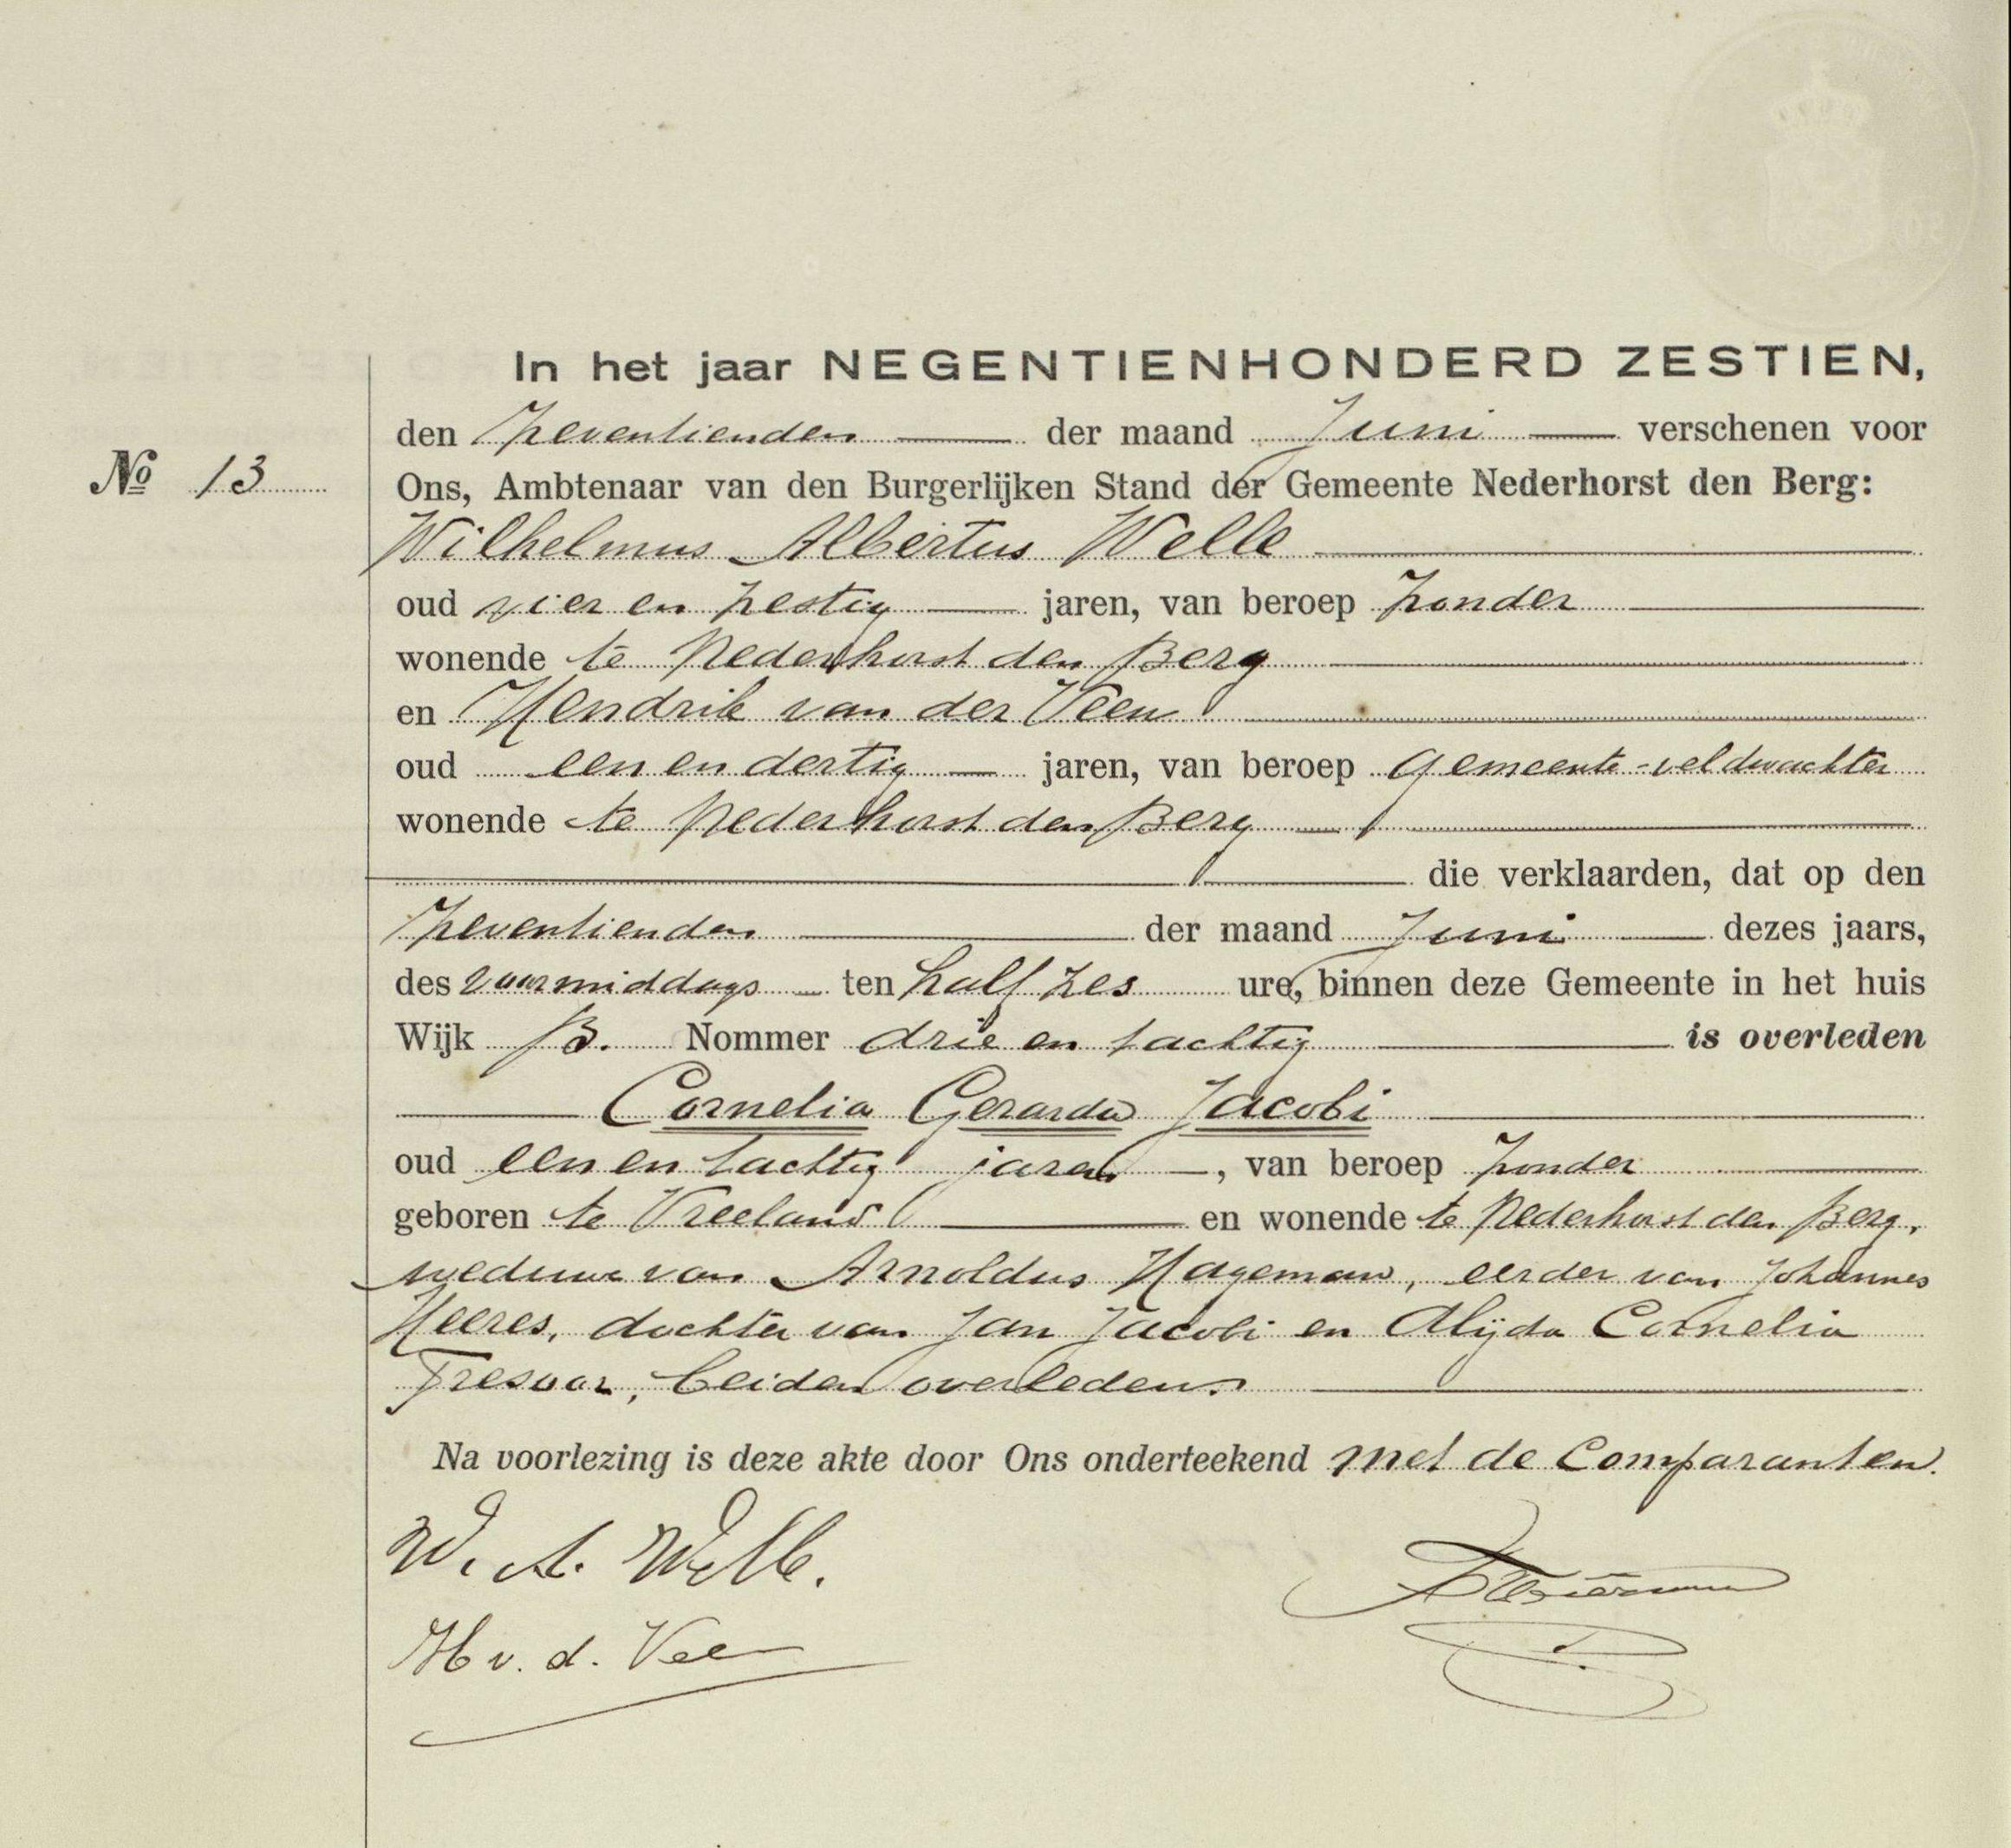 In het jaar NEGENTIENHONDERD ZESTIEN,
den zeventienden der maand Juni verschenen voor
No 13
Ons, Ambtenaar van den Burgerlijken Stand der Gemeente Nederhorst den Berg:
Wilhelmus Albertus Welle
oud vier en zestig jaren, van beroep zonder
wonende te Nederhorst den Berg
en Hendrik van der Veen
oud een en dertig jaren, van beroep gemeente-veldwachter
wonende te Nederhorst den Berg
die verklaarden, dat op den
zeventienden der maand Juni dezes jaars,
des voormiddags ten half zes ure, binnen deze Gemeente in het huis
Wijk B. Nommer drie en tachtig is overleden
Cornelia Gerarda Jacobi
oud een en tachtig jaren, van beroep zonder
geboren te Vreeland en wonende te Nederhorst den Berg,
weduwe van Arnoldus Hageman, eerder van Johannes
Heeres, dochter van Jan Jacobi en Alijda Cornelia
Tresoor, beiden overleden.
Na voorlezing is deze akte door Ons onderteekend met de Comparanten.
W. A. Welle.
H v. d. Veen